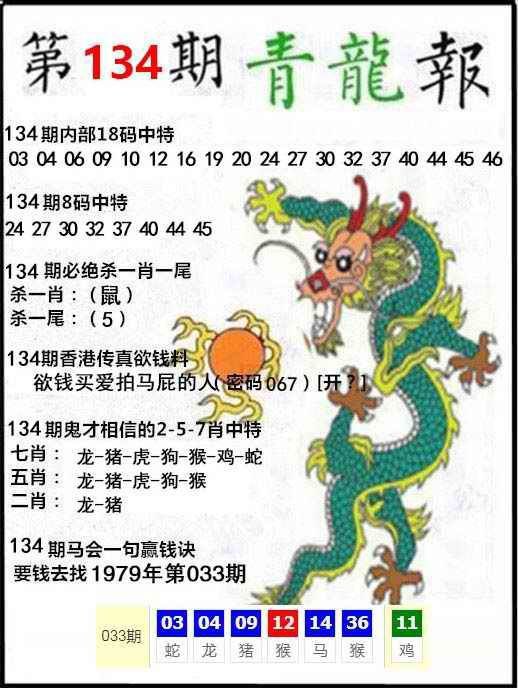 第134期青龍報
134期内部18码中特
03 04 06 09 10 12 16 19 20 24 27 30 32 37 40 44 45 46
134期8码中特
24 27 30 32 37 40 44 45
134 期必绝杀一肖一尾
杀一肖：（鼠）
杀一尾：（5）
134期香港传真欲钱料
欲钱买爱拍马屁的人（密码067）[开？]
134期鬼才相信的2-5-7肖中特
七肖： 龙-猪-虎-狗-猴-鸡-蛇
五肖： 龙-猪-虎-狗-猴
二肖： 龙-猪
134期马会一句赢钱诀
要钱去找1979年第033期
033期 03 04 09 12 14 36 11
蛇 龙 猪 猴 马 猴 鸡